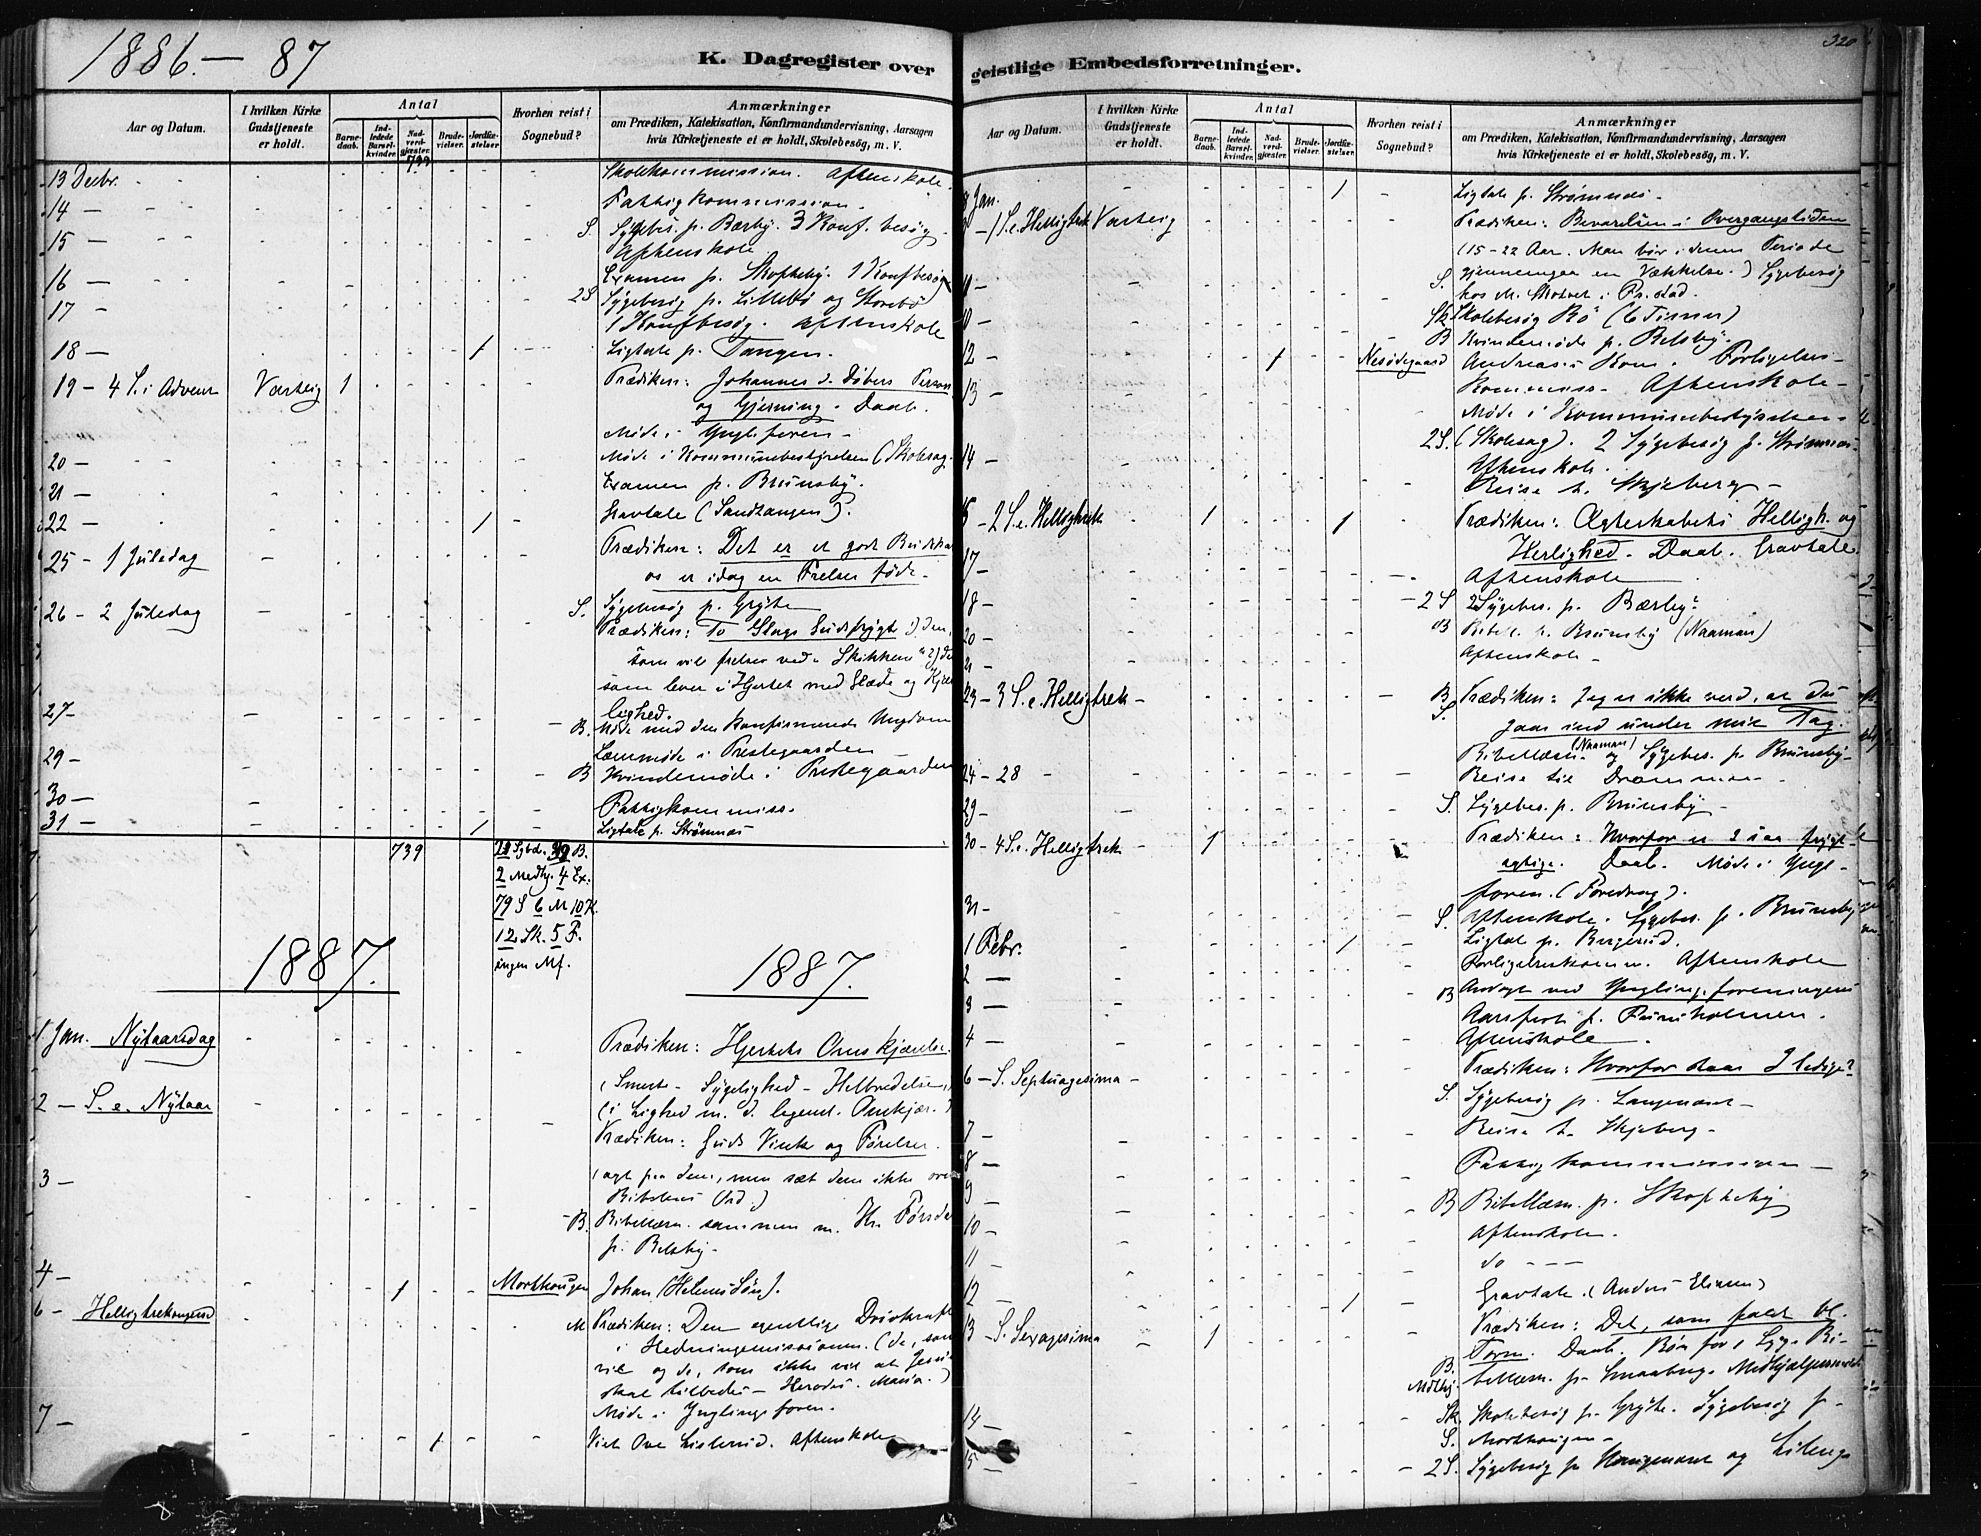 1886.— 87
K. Dagregister over
Aar og Datum.
I hvilken Kirke Gudstjeneste er holdt.
Antal
Barnedaab.
Indledede Barselkvinder.
Nadverdgjæster.
Brudevielser.
Jordfæstelser
Hvorhen reist i Sognebud?
Anmærkninger
om Prædiken, Katekisation, Konfirmandundervisning, Aarsagen
hvis Kirketjeneste ei er holdt, Skolebesøg, m. V.
739
13 Decbr. Skolekommission. Aftenskole.
14 — Fattigkommission.
15 — S. Sygebes. p. Bærby. 3 Konf. besøg
Aftenskole
16 — Examen p. Skofteby. 1 Konfbesøg
17 - 2S Sygebesøg p. Lillebø og Storebø
1 Konfbesøg. Aftenskole
18 — 1 Ligtale p. Tangen.
19 - 4 S. i Advent Varteig 1 Prædiken: Johannes d. Døbers Person
og Gjerning. Daab.
Møde i Yngl. foren.
20 - Møde i Kommunebestyrelsen (Skolesag.
21 - Examen p. Brunsby.
22 - 1 Gravtale (Sandtangen).
25 - 1 Juledag Prædiken: Det er et godt Budskab
os er idag en Frelser født.
26 - 2 Juledag S. Sygebesøg p. Grøtet
Prædiken: To Slags Gudsfrygt 1) den,
som vil frelses ved "Skikken" 2) den
som lever i Hjertet med Glæde og Kjær
lighed.
27- B. Møde med den konfirmerede Ungdom
Læsemøde i Præstegaarden
29 - B Kvindemøde i Præstegaarden
30 — Fattigkommiss.
31 — 1 Ligtale p. Strømnes
739 B.
2 Medhj. 4 Ex.
79 S 6 M 10 K.
12 Sk. 5 F.
ingen Mf.
1887. 1887.
1. Jan. Nytaarsdag Prædiken: Hjertets Omskjærelse.
(Smerte - Sygelighed - Helbredelse,
(i Lighed m. d. legeml. Omskjær.)
2 — S. e. Nytaar Prædiken: Guds Vink og Førelser.
(agt paa dem, men sæt dem ikke over
Bibelens Ord.)
3 — B. Bibellæsn. sammen m. Hr. Førsde
p. Belsby.
4 — 1 Morthaugen Johan (Helenes Søn).
6 - Helligtrekongersd M Prædiken: Den egentlige Drivkraft
i Hedningemissionen. (de, som
vil og de, som ikke vil at Jesus
skal tilbedes — Herodes. Maria.)
Møde i Ynglingeforen.
7 — 1 Viet Ove Lislerud. Aftenskole
geistlige Embedsforretninger.
320
Aar og Datum.
I hvilken Kirke Gudstjeneste er holdt.
Antal
Barnedaab.
Indledede Barselkvinder.
Nadverdgjæster.
Brudevielser.
Jordfæstelser.
Hvorhen reist i Sognebud?
Anmærkninger
om Prædiken, Katekisation, Konfirmandundervisning, Aarsagen
hvis Kirketjeneste ei er holdt, Skolebesøg, m. V.
8 Jan. 1 Ligtale p. Strømnes.
9 - 1 S. e. Helligtrek Varteig Prædiken: Bevarelsen i Overgangstiden
(15-22 Aar. Man bør i denne Periode
gjennemgaa en Vækkelse.) Sygebesøg
S. hos M. Skolvet i Pr.stad.
10 - Sk. Skolebesøg Bø (6 Timer)
B Kvindemøde p. Belsby.
12 - 1 Nesødegaard Andreas's Kone. Forligelses-
13 - Kommiss. Aftenskole.
Møde i Kommunebestyrelsen
14 - 2S. (Skolesag). 2 Sygebesøg p. Strømnes.
Aftenskole.
Reise t. Skjeberg
16 - 2 S. e. Helligtrek 1 1 Prædiken: Ægteskabets Helligh. og
Herlighed. Daab. Gravtale.
17 — Aftenskole
18 — 2 S 2 Sygebes. p. Bærby.
20 — B Bibell. p. Brunsby (Naaman)
21 — Aftenskole
23 - 3 S. e. Helligtrek B Prædiken: Jeg er ikke værd, at du
S. gaar ind under mit Tag.
Bibellæsn. (Naaman) og Sygebes. p. Brunsby.
24 - 28 Reise til Drammen.
29 — S. Sygebes. p. Brunsby
30 - 4 S. e. Helligtrek 1 Prædiken: Hvorfor er I saa frygt-
agtige. Daab. Møde i Yngl-
foren. (Foredrag).
31 - S. Aftenskole. Sygebes. p. Brunsby
1 Febr. 1 Ligtal p. Bergerud.
2 — Forligelseskomm. Aftenskole
3 — B Andagt ved Ynglingeforeningens
Aarsfest p. Furuholmen.
4 — Aftenskole.
6 - S. Septuagesima Prædiken: Hvorfor staar I ledige?
S. Sygebesøg p. Langenæset
7 — Reise t. Skjeberg.
8 — Fattigkommission
9 — B Bibellæsn. p. Skofteby
10 — Aftenskole.
11 — do - - -
12 — 1 Gravtale. (Anders Elisen)
13 - S. Sexagesima 1 Prædiken: Det, som faldt bl.
Torne. Daab. Bøn for 1 Syg. Bi-
B. bellæsn. p. Smaaberg. Medhjælpermøde
Mdhj.
14 — Sk. Skolebesøg p. Grøtet. Sygebesøg p.
S. Morthaugen
15 — 2 S. Sygebesøg p. Haugenæset og